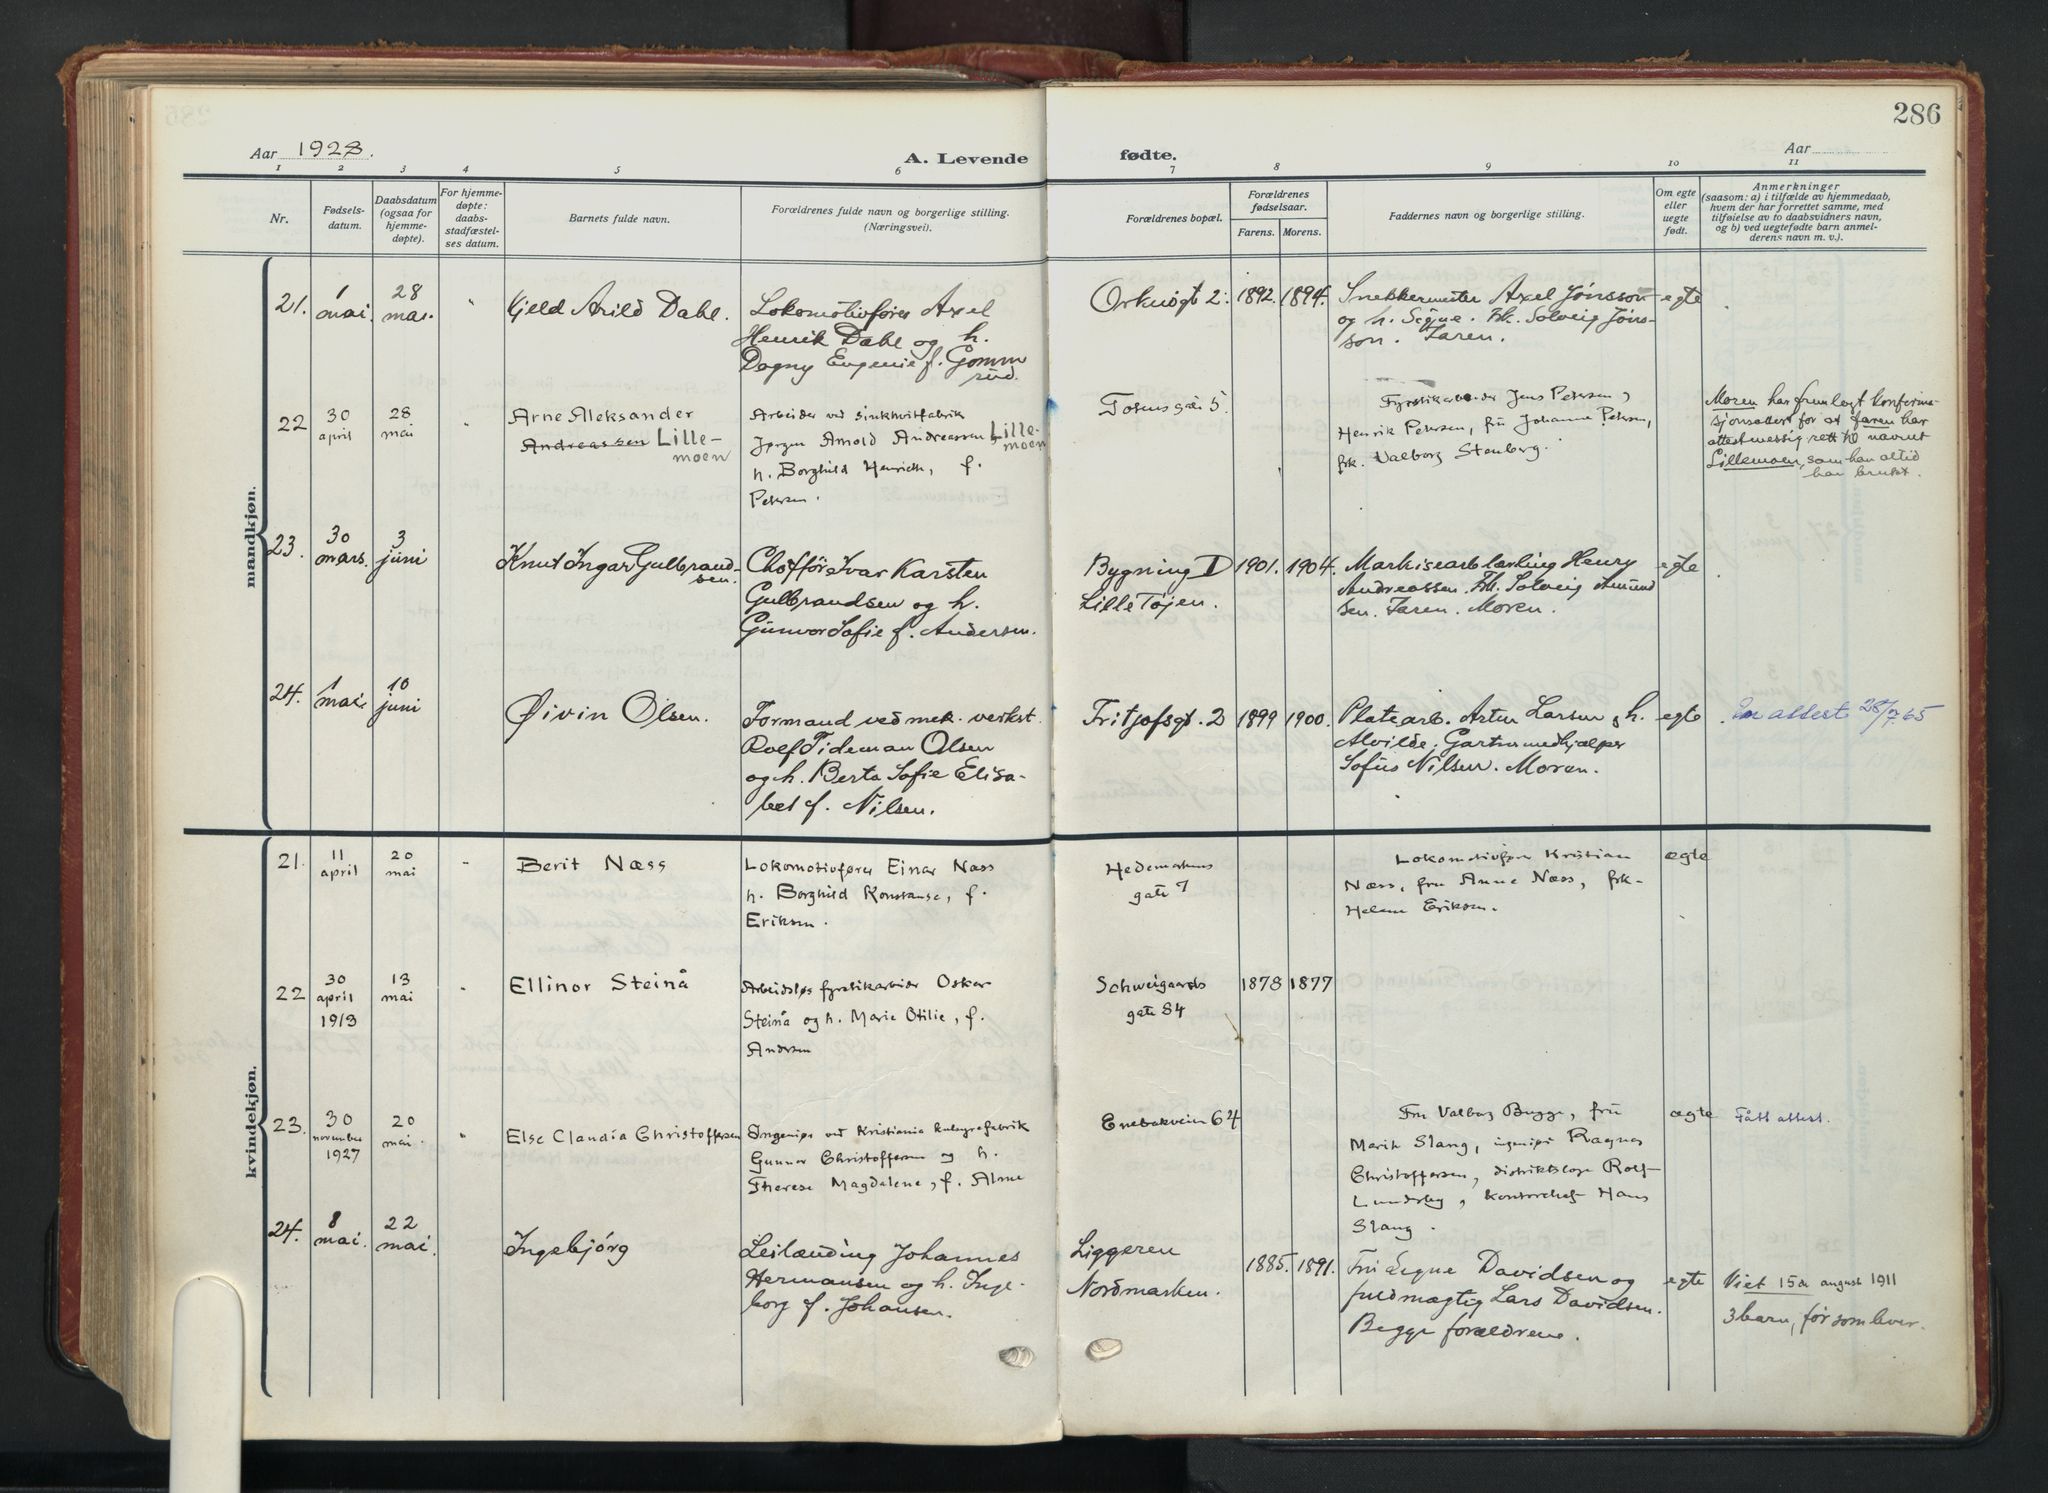 286
Aar 1928.
A. Levende
fødte.
Aar
1 2 3 4 5 6 7 8 9 10 11
Nr.
Fødsels-
datum.
Daabsdatum
(ogsaa for
hjemme-
døpte).
For hjemme-
døpte:
daabs-
stadfæstel-
ses datum.
Barnets fulde navn.
Forældrenes fulde navn og borgerlige stilling.
(Næringsvei).
Forældrenes bopæl.
Forældrenes
fødselsaar.
Farens. Morens.
Faddernes navn og borgerlige stilling.
Om egte
eller
uegte
født.
Anmerkninger
(saasom: a) i tilfælde av hjemmedaab,
hvem der har forrettet samme, med
tilføielse av to daabsvidners navn,
og b) ved uegtefødte barn anmel-
derens navn m. v.).
mandkjøn.
21.
1
mai.
28
mai.
"
Kjeld Arild Dahl.
Lokomotivfører Axel
Henrik Dahl og h.
Dagny Eugenie f. Gomm
rud.
Orknøgt 2.
1892. 1894.
Snekkermester Axel Jónsson
og h. Signe. Frk. Solveig Jóns-
son. Faren.
egte
22
30
april
28
mai
"
Arne Aleksander
Andreassen Lille-
moen
Arbeider ved sinkhvitfabrik
Jørgen Arnold Andreassen Lille-
moen
h. Borghild Henriette, f.
Petersen.
Tosensgate 5.
Fyrstikarbeider Jens Petersen,
Henrik Petersen, fru Johanne Petersen,
frk. Valborg Stenberg.
Moren har fremlagt konfirma-
sjonsattest for at faren har
attestmessig rett til navnet
Lillemoen, som han altid
har brukt.
23.
30
mars.
3
juni
Knut Ingar Gulbrand-
sen.
Chofför Ivar Karsten
Gulbrandsen og h.
Gunvor Sofie f. Andersen.
Bygning D
Lille Tøjen.
1901. 1904.
Markisearb lærling Henry
Andreassen. Frk. Solveig Amund
sen. Faren. Moren.
egte
24.
1
mai.
10
juni
Øivin Olsen.
Formand ved mek. verkst.
Rolf Tideman Olsen
og h. Berta Sofie Elisa-
bet f. Nilsen.
Fritjofsgt. 2
1899 1900.
Platearb. Artur Larsen, h.
Alvilde. Gartnermedhjælper
Sofus Nilsen. Moren.
egte
attest 28/7 65
kvindekjøn.
21.
11
april
20
mai
"
Berit Næss
Lokomotivfører Einar Næss
h. Borghild Konstanse, f.
Eriksen.
Hedemarkens
gate 7
Lokomotivfører Kristian
Næss, fru Anne Næss, frk.
Helene Eriksen.
ægte
22
30
april
1913
13
mai
"
Ellinor Steinå
Arbeidsløs fyrstikarbeider Oskar
Steinå og h. Marie Otilie, f.
Andersen
Schweigaards
gate 84
1878 1877
23.
30
november
1927
20
mai.
"
Else Claudia Christoffersen
Ingeniør ved Kristiania kulsyrefabrik
Gunnar Christoffersen og h.
Therese Magdalene, f. Alme
Enebakveien 64
Fru Valborg Bugge, fru
Marit Slang, ingeniør Ragnar
Christoffersen, distriktslæge Rolf
Lundsby, kontorchef Hans
Slang.
ægte
Fått attest.
24.
8
mai.
22
mai.
Ingebjórg
Leilænding Johannes
Hermansen og h. Inge
borg f. Johansen.
Liggeren
Nordmarken.
1885. 1891.
Fru Signe Davidsen og
fuldmægtig Lars Davidsen.
Begge forældrene.
egte
Viet 15de august 1911
3 barn, før som lever.